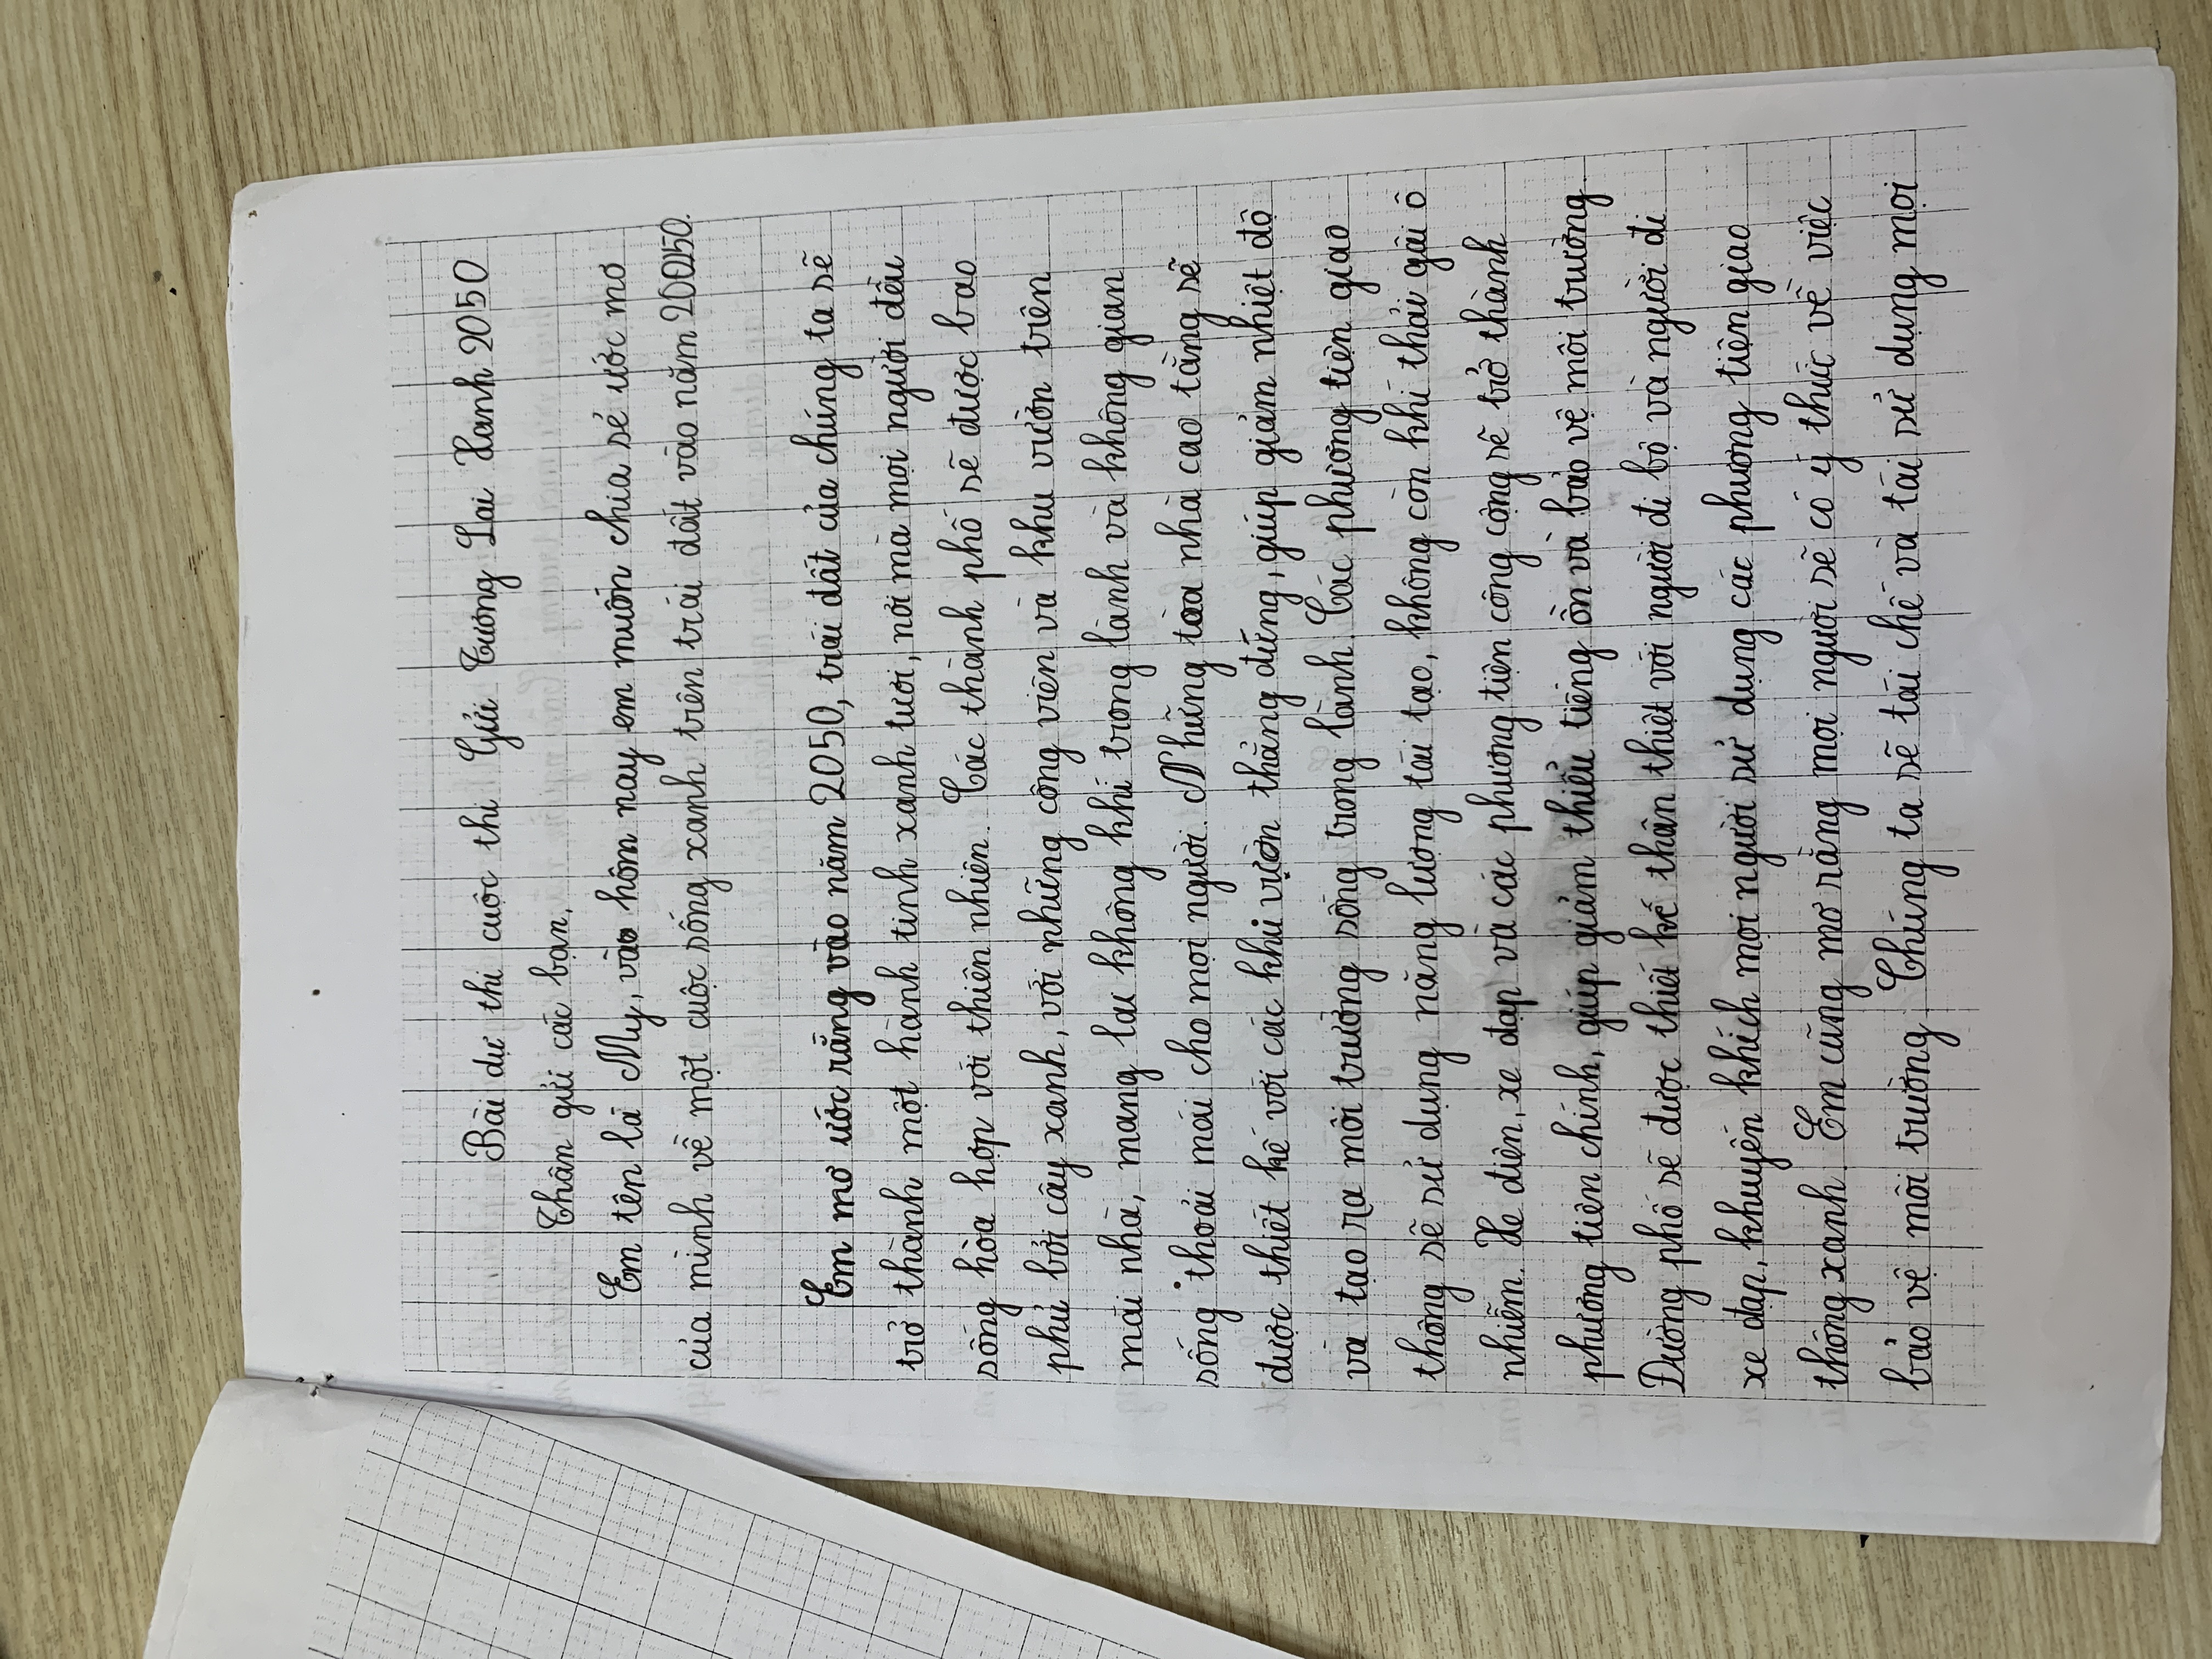 Bài dự thi cuộc thi Gửi Tương Lai Xanh 2050
Thân gửi các bạn,
Em tên là My, vào hôm nay em muốn chia sẻ ước mơ
của mình về một cuộc sống xanh trên trái đất vào năm 20050.
Em mơ ước rằng vào năm 2050, trái đất của chúng ta sẽ
trở thành một hành tinh xanh tươi, nơi mà mọi người đều
sống hòa hợp với thiên nhiên. Các thành phố sẽ được bao
phủ bởi cây xanh, với những công viên và khu vườn trên
mái nhà, mang lai không khí trong lành và không gian
sống thoải mái cho mọi người. Những tòa nhà cao tầng sẽ
được thiết kế với các khu vườn thẳng đứng, giúp giảm nhiệt độ
và tạo ra môi trường sống trong lành. Các phương tiện giao
thông sẽ sử dụng năng lượng tái tạo, không còn khí thải gâi ô
nhiễm. Xe điện, xe đạp và các phương tiện công cộng sẽ trở thành
phương tiên chính, giúp giảm thiểu tiếng ồn và bảo vệ môi trường.
Đường phố sẽ được thiết kế thân thiệt với người đi bộ và người đi
xe đạp, khuyến khích mọi người sử dụng các phương tiện giao
thông xanh. Em cũng mơ rằng mọi người sẽ có ý thức về việc
bảo vệ môi trường. Chúng ta sẽ tái chế và tái sử dụng mọi